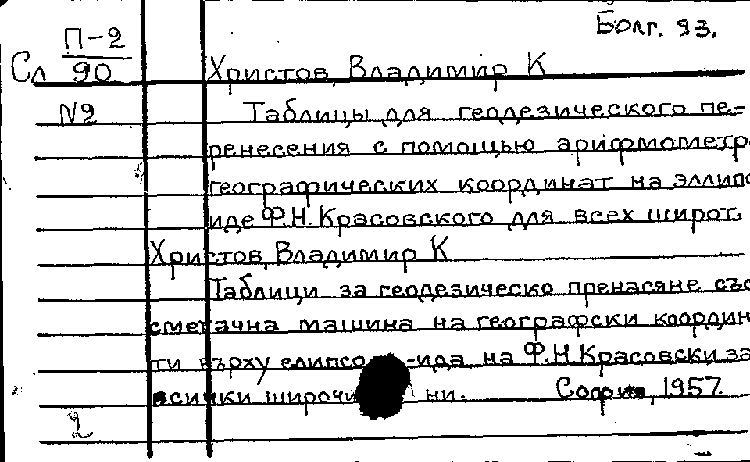 Болг. яз.
П-2
Сл 90
Христов, Владимир К
№2
Таблицы для геодезического пе-
ренесения с помощью арифмометр
географических координат на эллипсо
иде Ф.Н. Красовского для всех широт.
Христов, Владимир К
Таблици за геодезическо пренасяне със
сметачна машина на географски координ
ти върху елипсо-ида на Ф.Н. Красовски за
всички широчини. София, 1957.
2